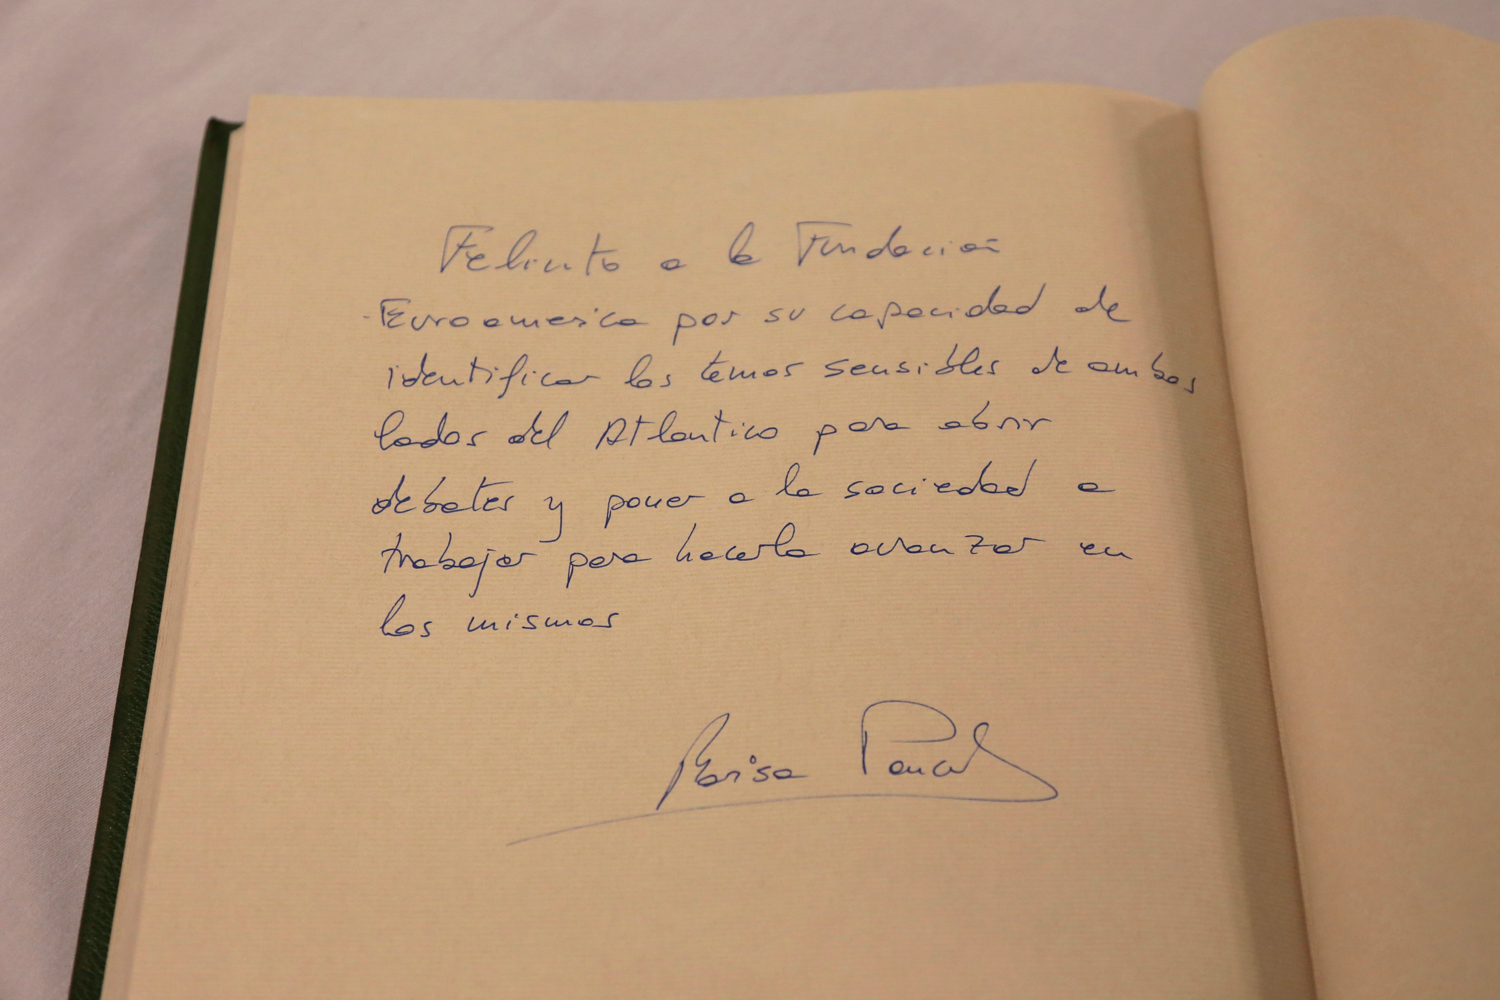 Felicito a la Fundación
Euroamerica por su capacidad de
identificar los temas sensibles de ambos
lados del Atlantico para abrir
debates y poner a la sociedad a
trabajar para hacerla avanzar en
los mismos